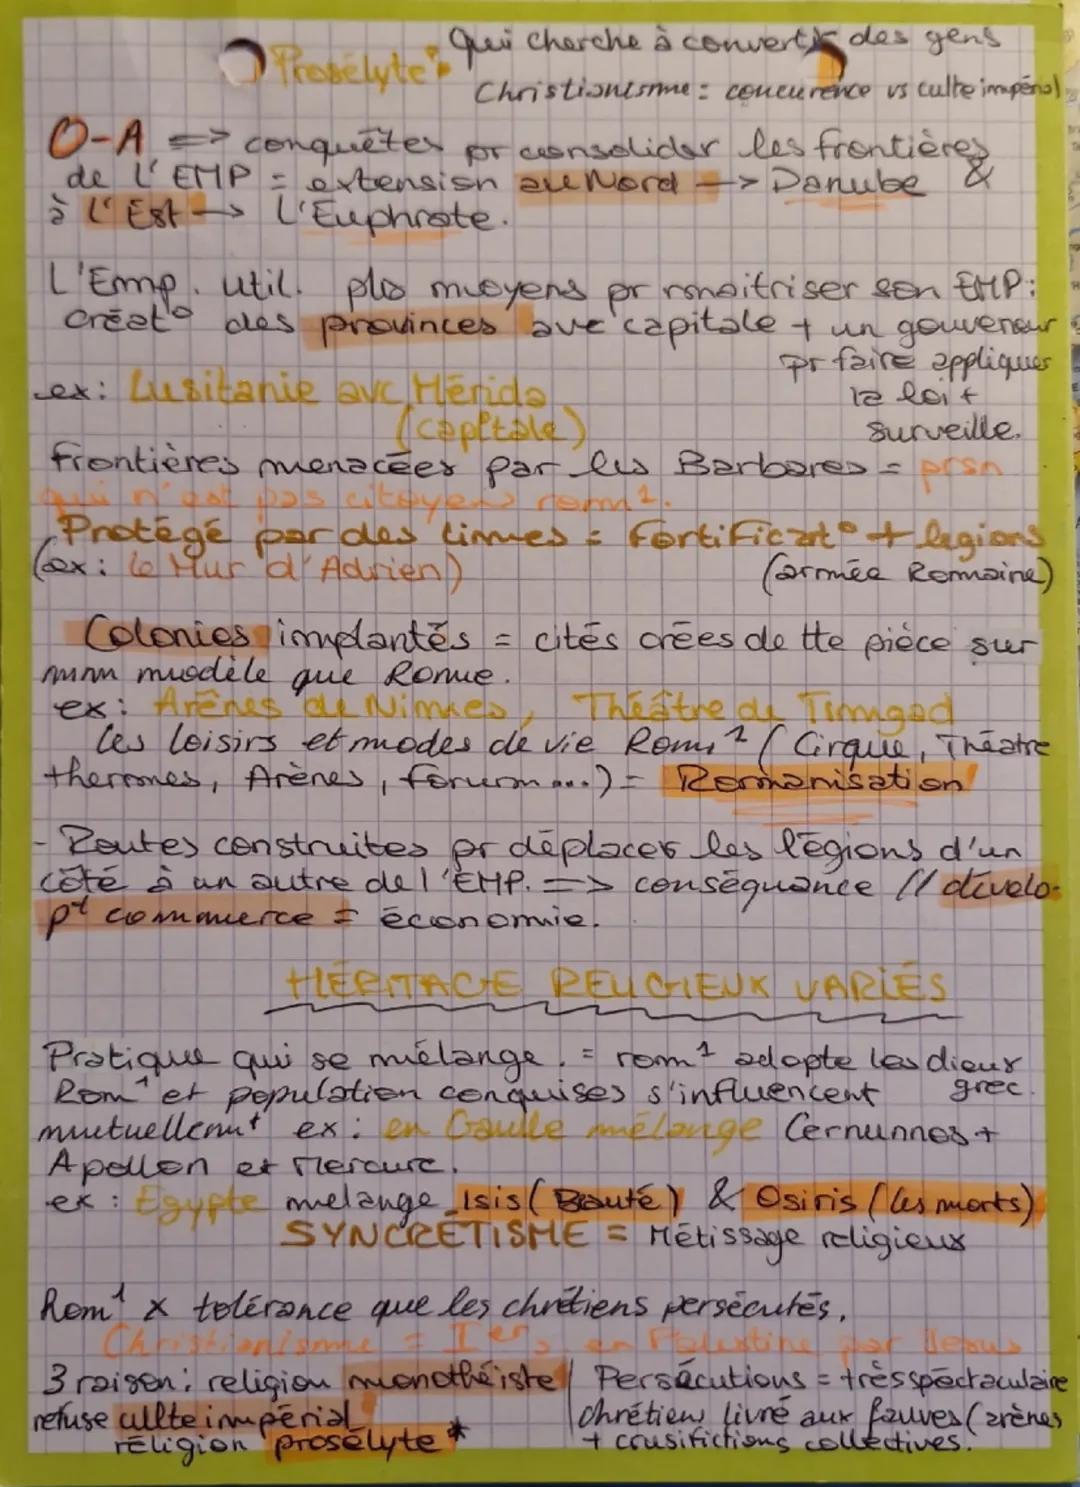 Prosélyte* Qui cherche à convertir des gens
Christianisme = concurence vs culte impérial
O-A => conquêtes pr consolider les frontières
de l'EMP = extension au Nord -> Danube &
à l'Est -> L'Euphrate.
L'Emp. util. pls moyens pr maitriser son EMP:
créat° des provinces avc capitale + un gouverneur
pr faire appliquer
la loi +
surveille.
ex: Lusitanie avc Mérida
(capitale)
Frontières menacées par les Barbares = prsn
qui n'est pas citoyens rom¹.
Protégé par des limes = Fortificat° + legions
(ex: le Mur d'Adrien) (armée Romaine)
Colonies implantés = cités crées de tte pièce sur
mm modèle que Rome.
ex: Arènes de Nimes, Théâtre de Timgad
les loisirs et modes de vie Rom¹ (Cirque, Théatre
thermes, Arènes, forum...) = Romanisation
- Routes construites pr déplacer les légions d'un
côté à un autre de l'EMP. => conséquance // dévelo-
pt commerce = économie.
HÉRITAGE RELIGIEUX VARIÉS
Pratique qui se mélange. = rom¹ adopte les dieux
grec.
Rom¹ et population conquises s'influencent
mutuellemt ex: en Gaulle mélange Cernunnos +
Apollon et Mercure.
ex: Egypte mélange Isis (Beauté) & Osiris (les morts)
SYNCRÉTISME = Métissage religieux
Rom¹ x tolérance que les chrétiens persécutés.
Christianisme = Ier s, en Palestine par Jesus
3 raison: religion monothéiste
refuse cullte impérial
réligion prosélyte *
Persécutions = très spectaculaire
chrétiens livré aux fauves (arènes
+ crusifictions collectives.